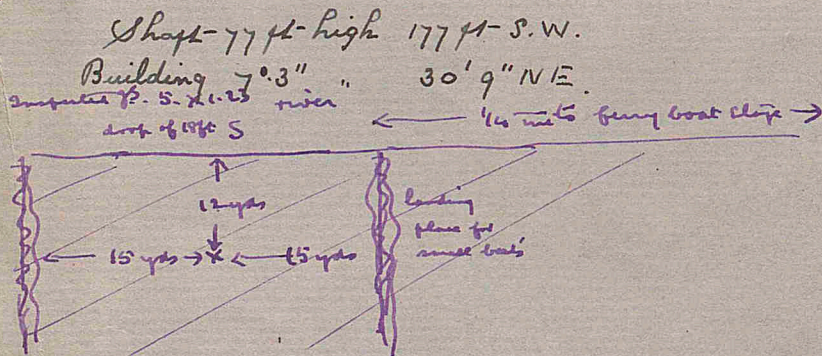 Shaft 77 ft high 177 ft S.W.
Building 7°.3" " 30' 9" NE.
Inspected 5.XI.23 river
drop of 18ft S
ferry boat slip
12 yds
15 yds x 15 yds
landing
place for
small boats